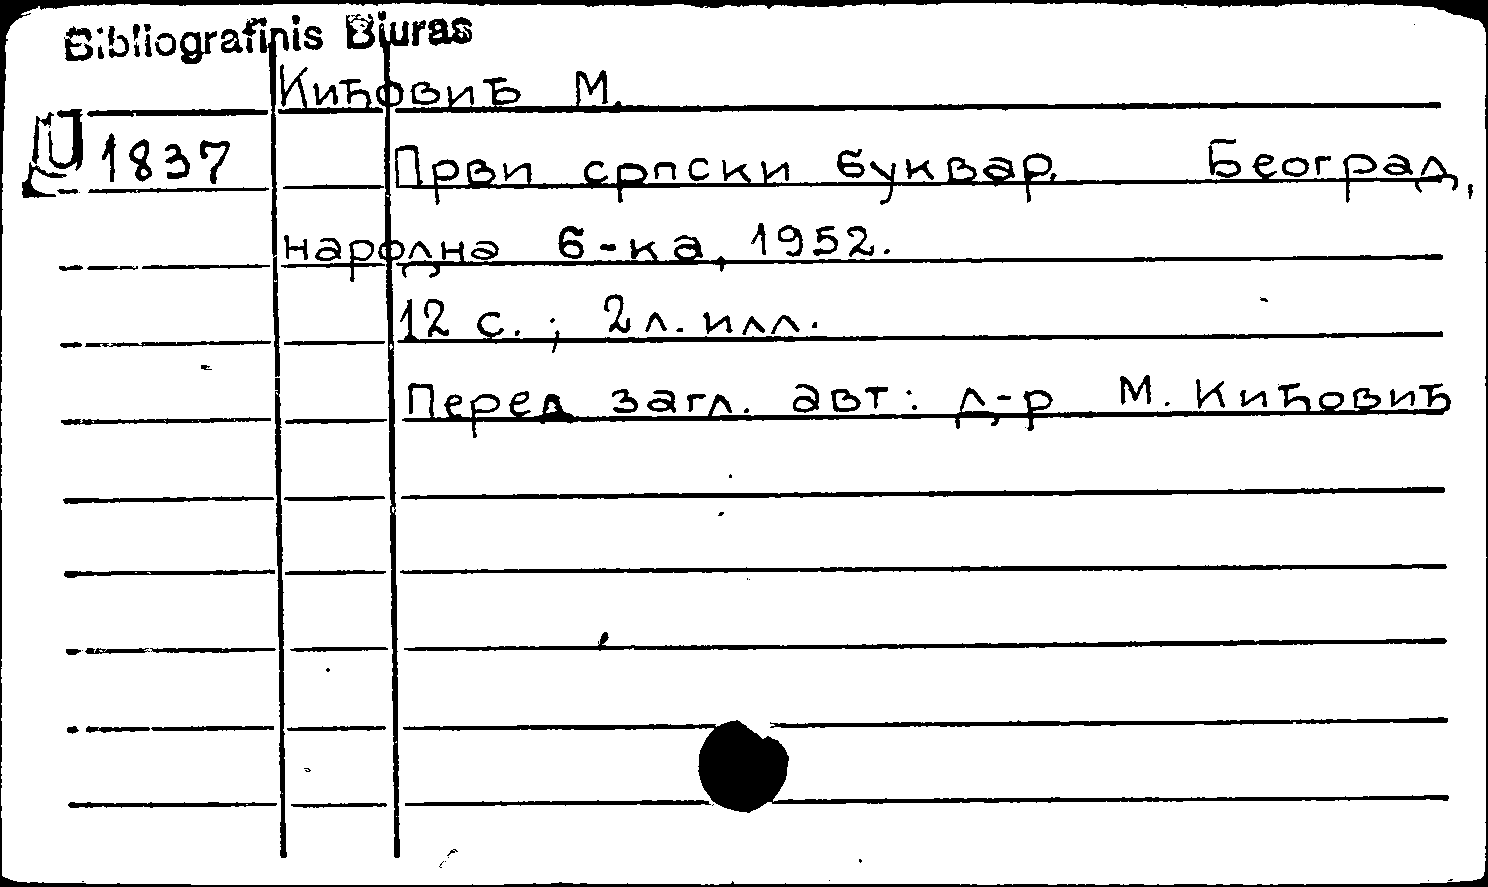 Bibliografinis Biuras
Кићовић М.
1837 Први српски буквар. Београд,
народна б-ка, 1952.
12 с. ; 2 л. илл.
Перед загл. авт: д-р М. Кићовић